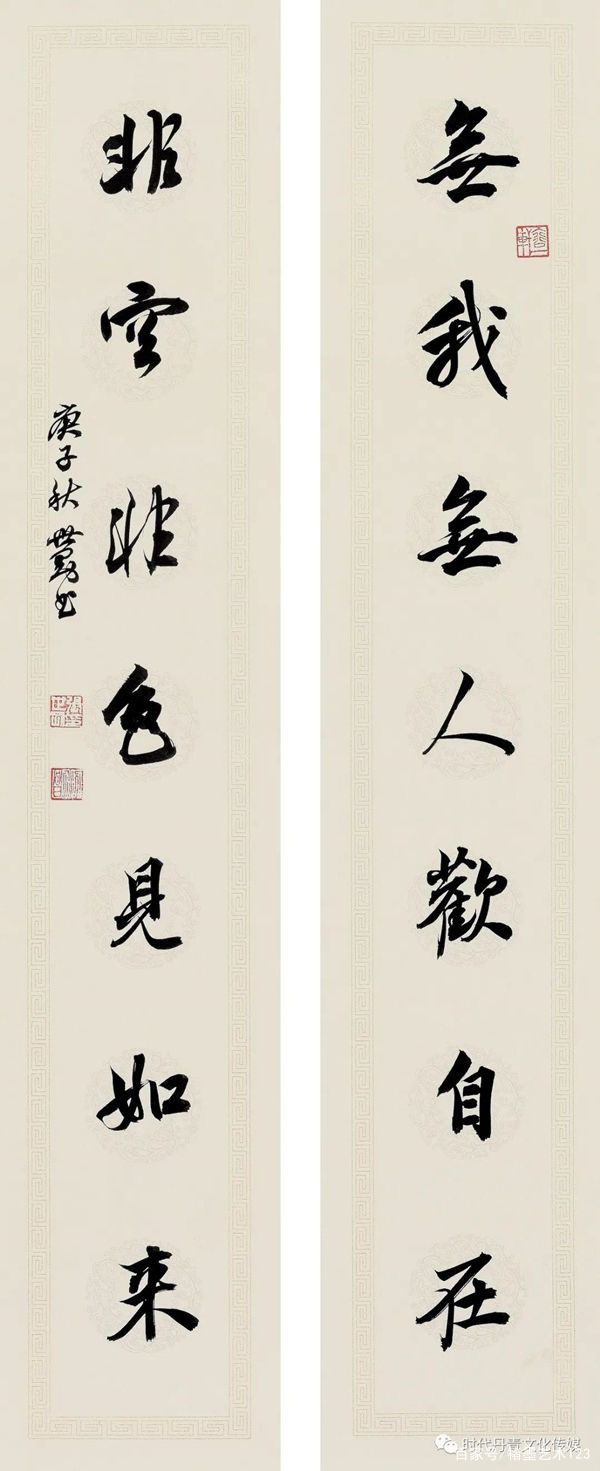 無我無人歡自在
非空非色見如来
庚子秋世
时代丹青文化传媒
百家号/墨艺术123